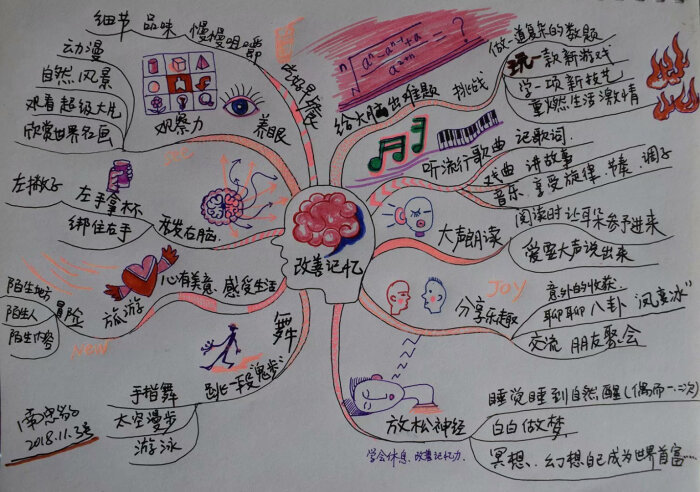 改善记忆
给大脑出难题
挑战
做一道复杂的数题
玩一款新游戏
学一项新技艺
重燃生活激情
听流行歌曲
记歌词.
戏曲 讲故事
音乐.享受旋律.节奏.调子
大声朗读
阅读时让耳朵参予进来
爱要大声说出来
JOY
分享乐趣
意外的收获.
聊聊八卦
交流 朋友聚会
放松神经
睡觉睡到自然醒(偶而一、二次)
白日做梦
冥想、幻想自己成为世界首富……
学会休息.改善记忆力.
舞
手指舞
太空漫步
游泳
心有美意、感受生活
旅游
冒险
陌生地方
陌生人
陌生内容
NEW
右脑.
左手拿杯
绑住右手
养眼
观察力
动漫
自然.风景
观看超级大片
欣赏世界名画
细节 品味 慢慢咀嚼
2018.11.3